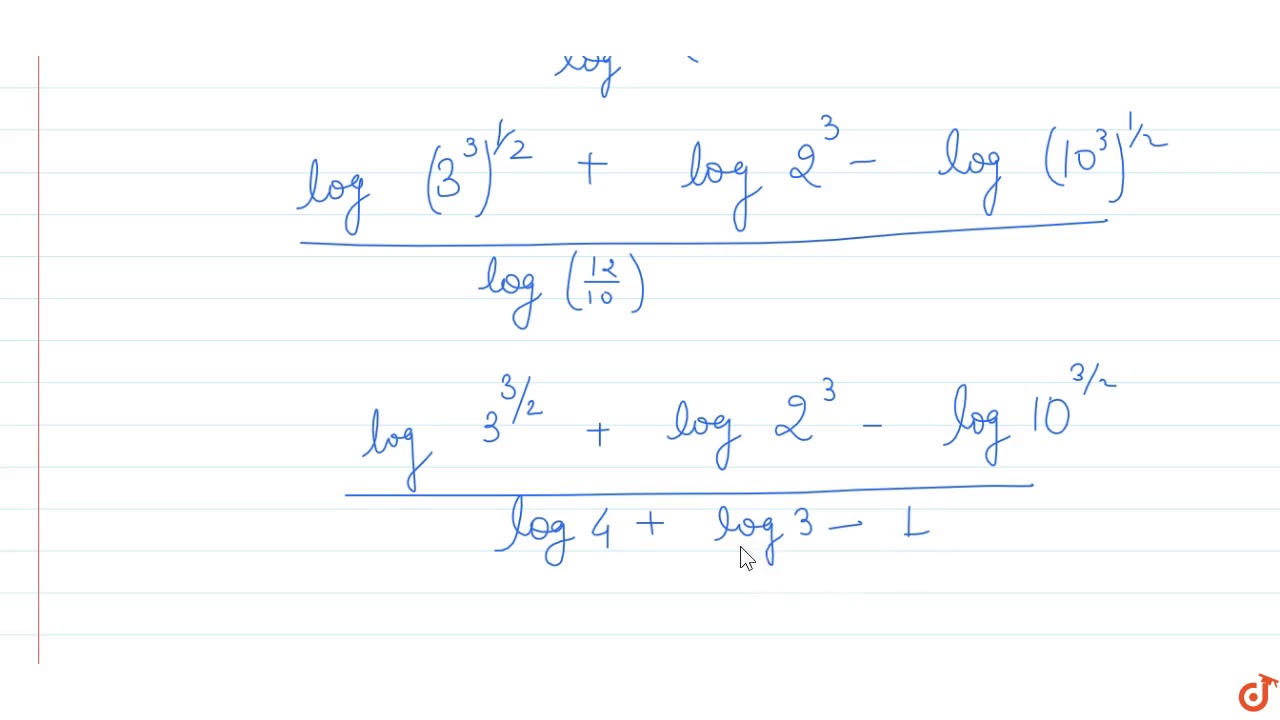 log
log (3^3)^1/2 + log 2^3 - log (10^3)^1/2
log (12/10)
log 3^3/2 + log 2^3 - log 10^3/2
log 4 + log 3 - 1